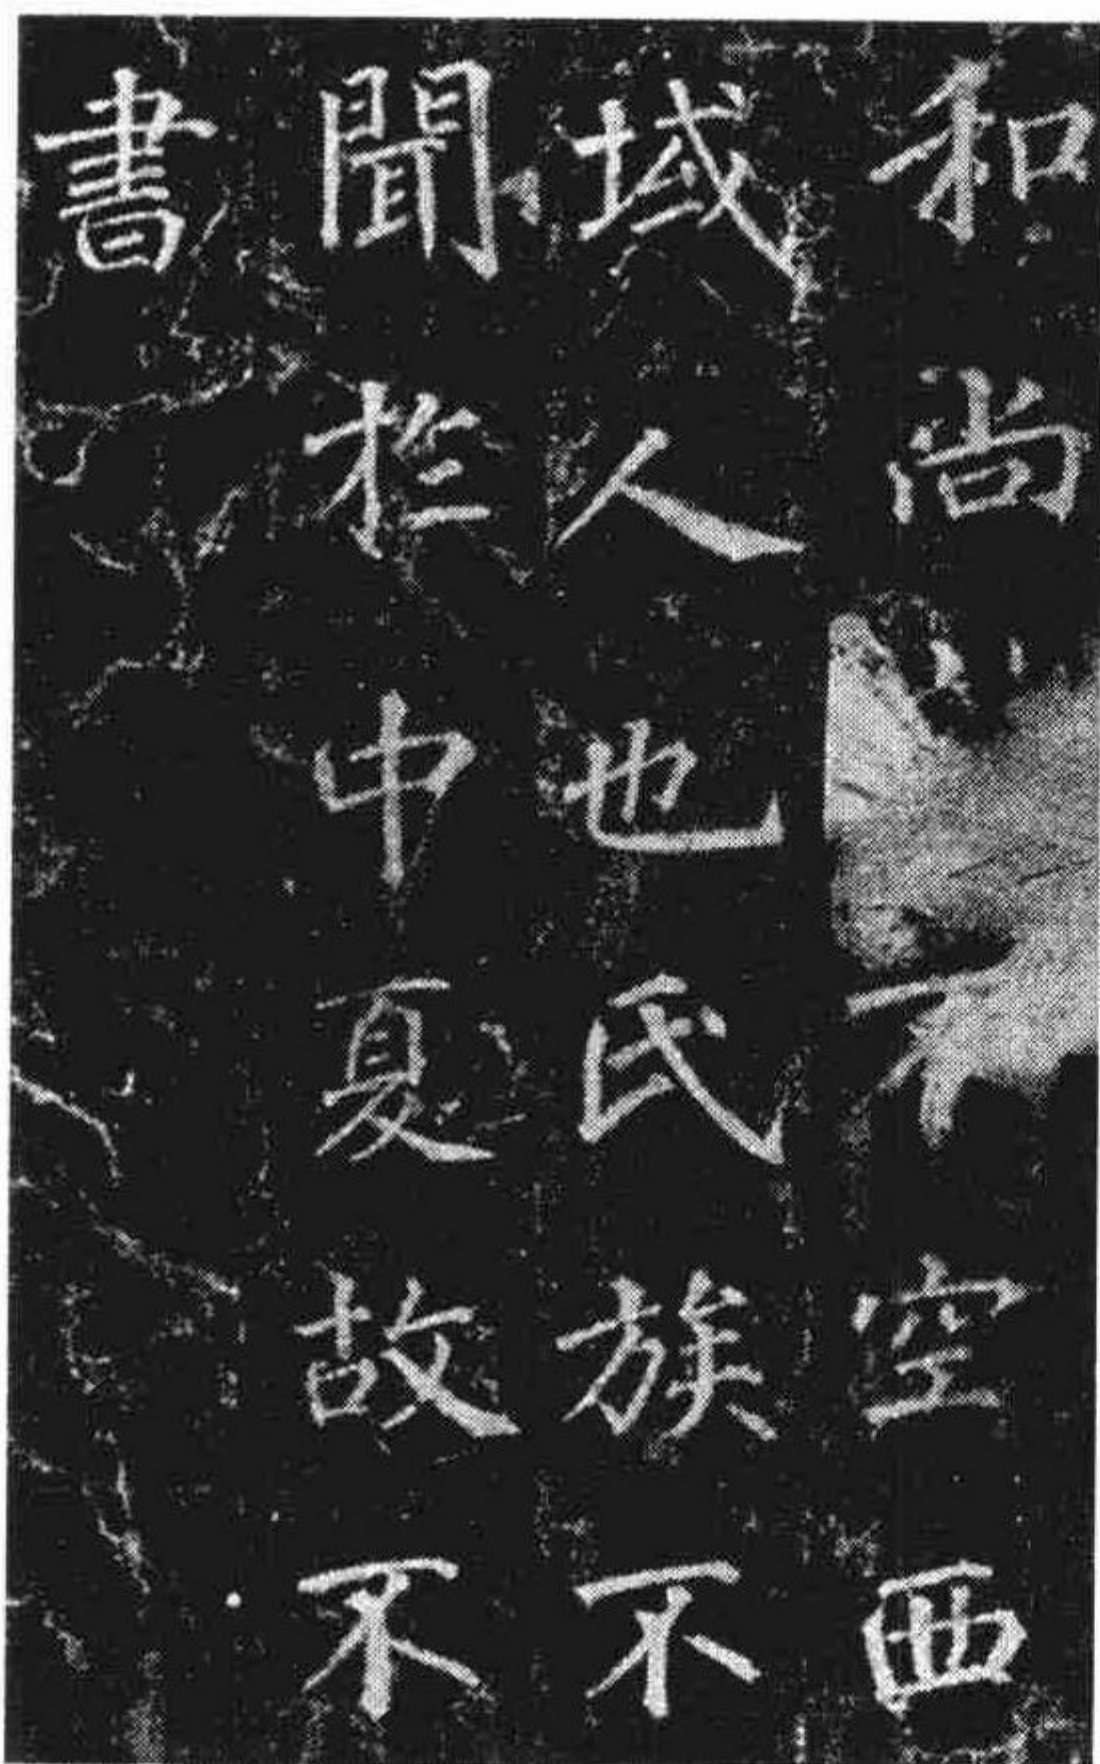 和尚不空西
域人也氏族不
聞扵中夏故不
書